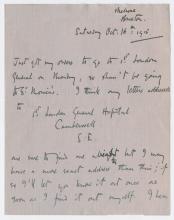 Melrose
Buxton.
Saturday Oct. 16th 1915
Just got my orders to go to 1st London
General on Monday, so shan't be going
to St Monica's. I think my letters addressed
to 1st London General Hospital
Camberwell
S.E.
are sure to find me alright but I may
have a more exact address than this; if
so I'll let you know it at once as
soon as I find it out myself. I hear